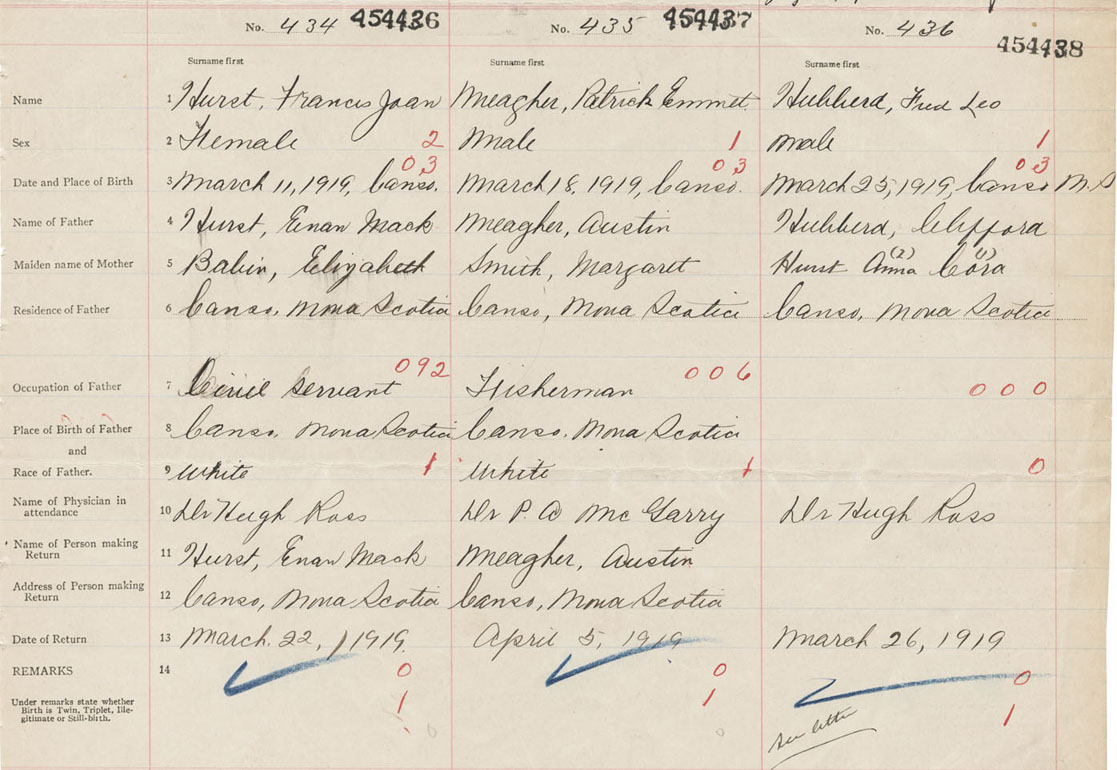 No. 434 454436 No. 435 454437 No. 436 454438
Surname first Surname first Surname first
Name 1 Hurst, Francis Joan Meagher, Patrick Emmet. Hubberd, Fred Leo
Sex 2 Female 2 Male 1 male 1
03 03 03
Date and Place of Birth 3 March 11, 1919, Canso. March 18, 1919, Canso. March 25, 1919, Canso N.S
Name of Father 4 Hurst, Enan Mack Meagher, Austin Hubberd, Clifford
Maiden name of Mother 5 Babin, Elizabeth Smith, Margaret Hurst Anna (2) Cora (1)
Residence of Father 6 Canso, Nova Scotia Canso, Nova Scotia Canso, Nova Scotia
092 006 000
Occupation of Father 7 Civil Servant Fisherman
Place of Birth of Father 8 Canso, Nova Scotia Canso, Nova Scotia
and
Race of Father. 9 White 1 White 1 0
Name of Physician in
attendance 10 Dr Hugh Ross Dr P. A McGarry Dr Hugh Ross
Name of Person making
Return 11 Hurst, Enan Mack Meagher, Austin
Address of Person making
Return 12 Canso, Nova Scotia Canso, Nova Scotia
Date of Return 13 March. 22, 1919, April 5, 1919 March 26, 1919
REMARKS 14 0 0 0
Under remarks state whether
Birth is Twin, Triplet, Ille-
gitimate or Still-birth. 1 1 1
see letter